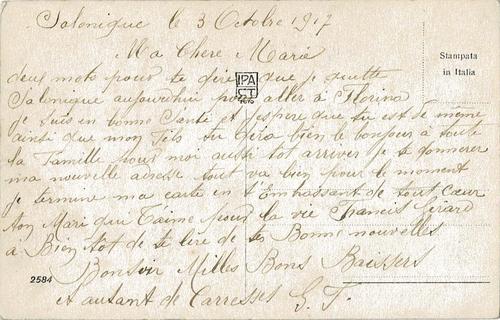 Salonique le 3 Octobre 1917
Ma Chere Marie
deux mots pour te dire que je quitte
Salonique aujourdhui pour aller à Florina
je suis en bonne Santé et j'espere que tu est de même
ainsi que mon fils tu dira bien le bonjour à toute
la Famille pour moi aussi tot arriver je te donnerer
ma nouvelle adresse tout va bien pour le moment
je termine ma carte en t'Embrassant de tout Cœur
ton Mari qui t'aime pour la vie Francis Girard
à Bien tot de te lire de tes Bonne nouvelles
Bonsoir Milles Bons Baissers
et autant de Carresses G. F.
IPA
CT
FOTO
Stampata
in Italia
2584